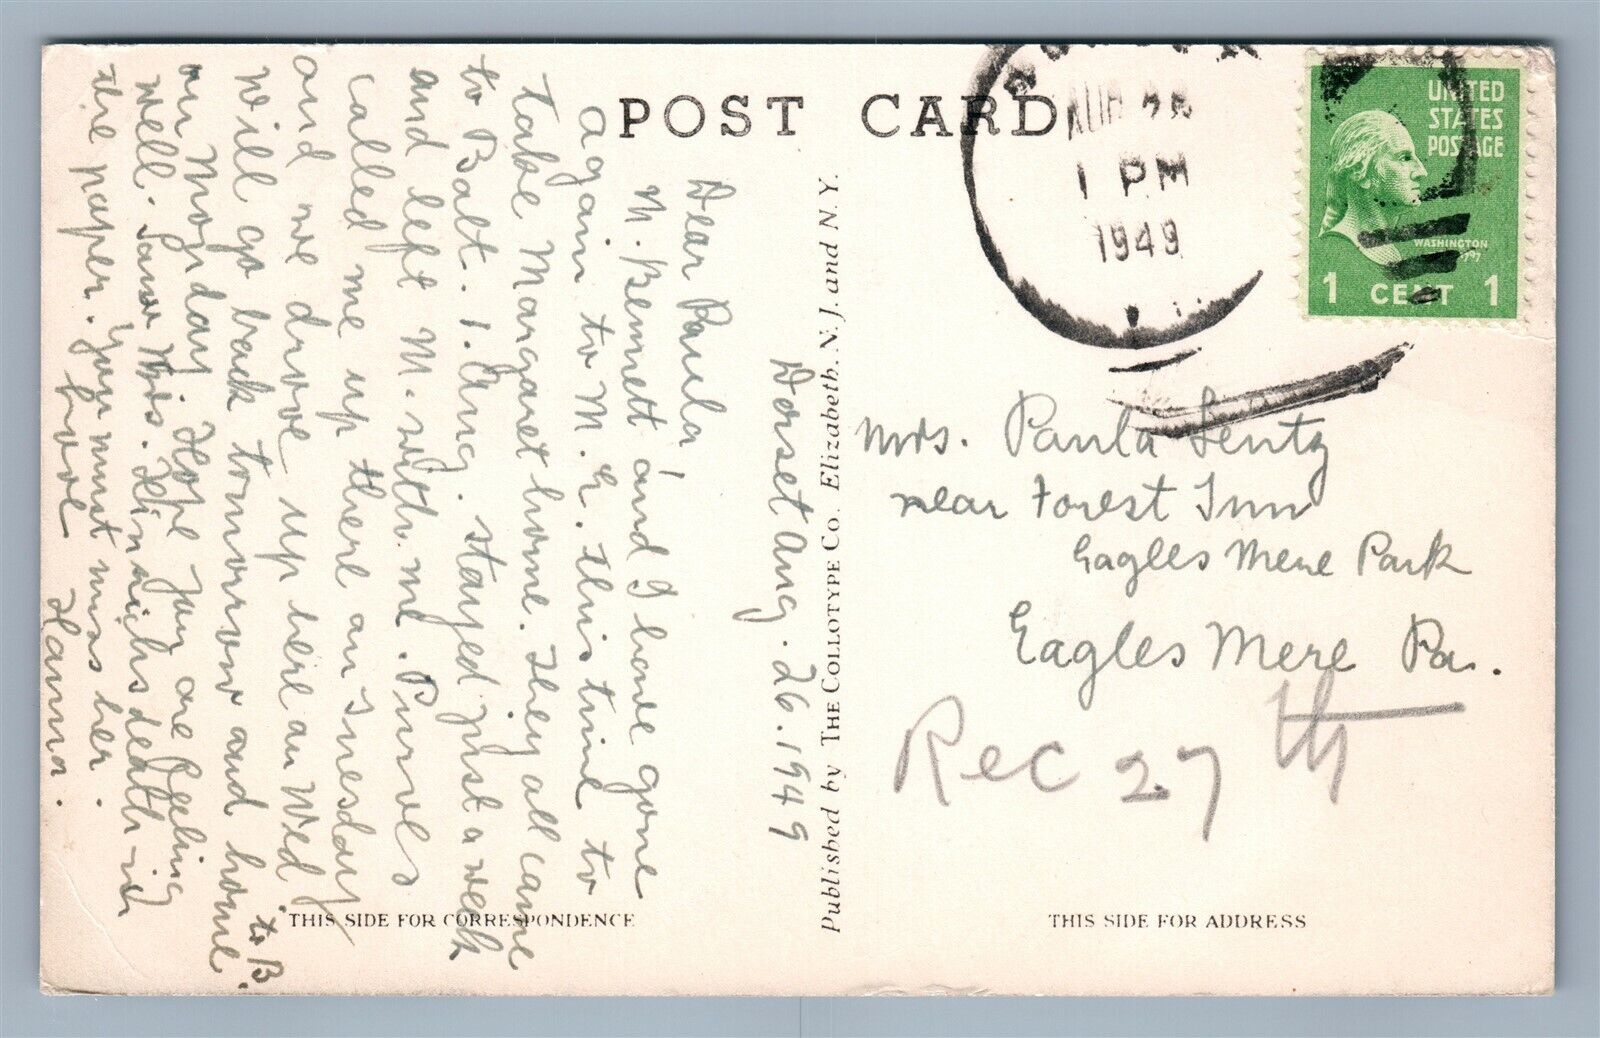 POST CARD
Dorset Aug. 26. 1949
Dear Paula,
M. Bennett and I have gone
again to M. E. this time to
take Margaret home. They all came
to Balt. 1. Aug. stayed just a week
and left M. with me. Purves
called me up there on Tuesday
and we drove up here on Wed.
Will go back tomorrow and home to B.
on Monday. Hope you are feeling
well. Saw Mrs. Heinrichs death in
the paper. You must miss her.
Love
Hanna.
THIS SIDE FOR CORRESPONDENCE
Published by THE COLLOTYPE Co. Elizabeth, N. J. and N. Y.
AUG 26
1 PM
1949
UNITED
STATES
POSTAGE
WASHINGTON
1 CENT 1
Mrs. Paula Lentz
near Forest Inn
Eagles Mere Park
Eagles Mere Pa.
Rec 27th
THIS SIDE FOR ADDRESS